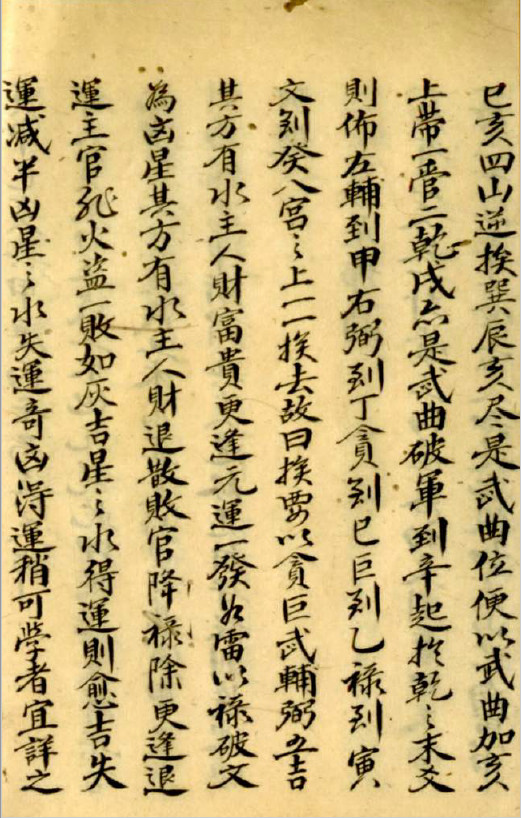 巳亥四山逆挨巽辰亥尽是武曲位便以武曲加亥
上帶一管二乾戌亦是武曲破軍到辛起於乾〻末爻
則佈左輔到申右弼到丁貪到巳巨到乙祿到寅
文到癸八宮〻上一一挨去故曰挨要以貪巨武輔弼五吉
其方有水主人財富貴更逢元運一發如雷以祿破文
為凶星其方有水主人財退散敗官降祿除更逢退
運主官非火盜一敗如灰吉星〻水得運則愈吉失
運減半凶星〻水失運奇凶得運稍可學者宜詳之